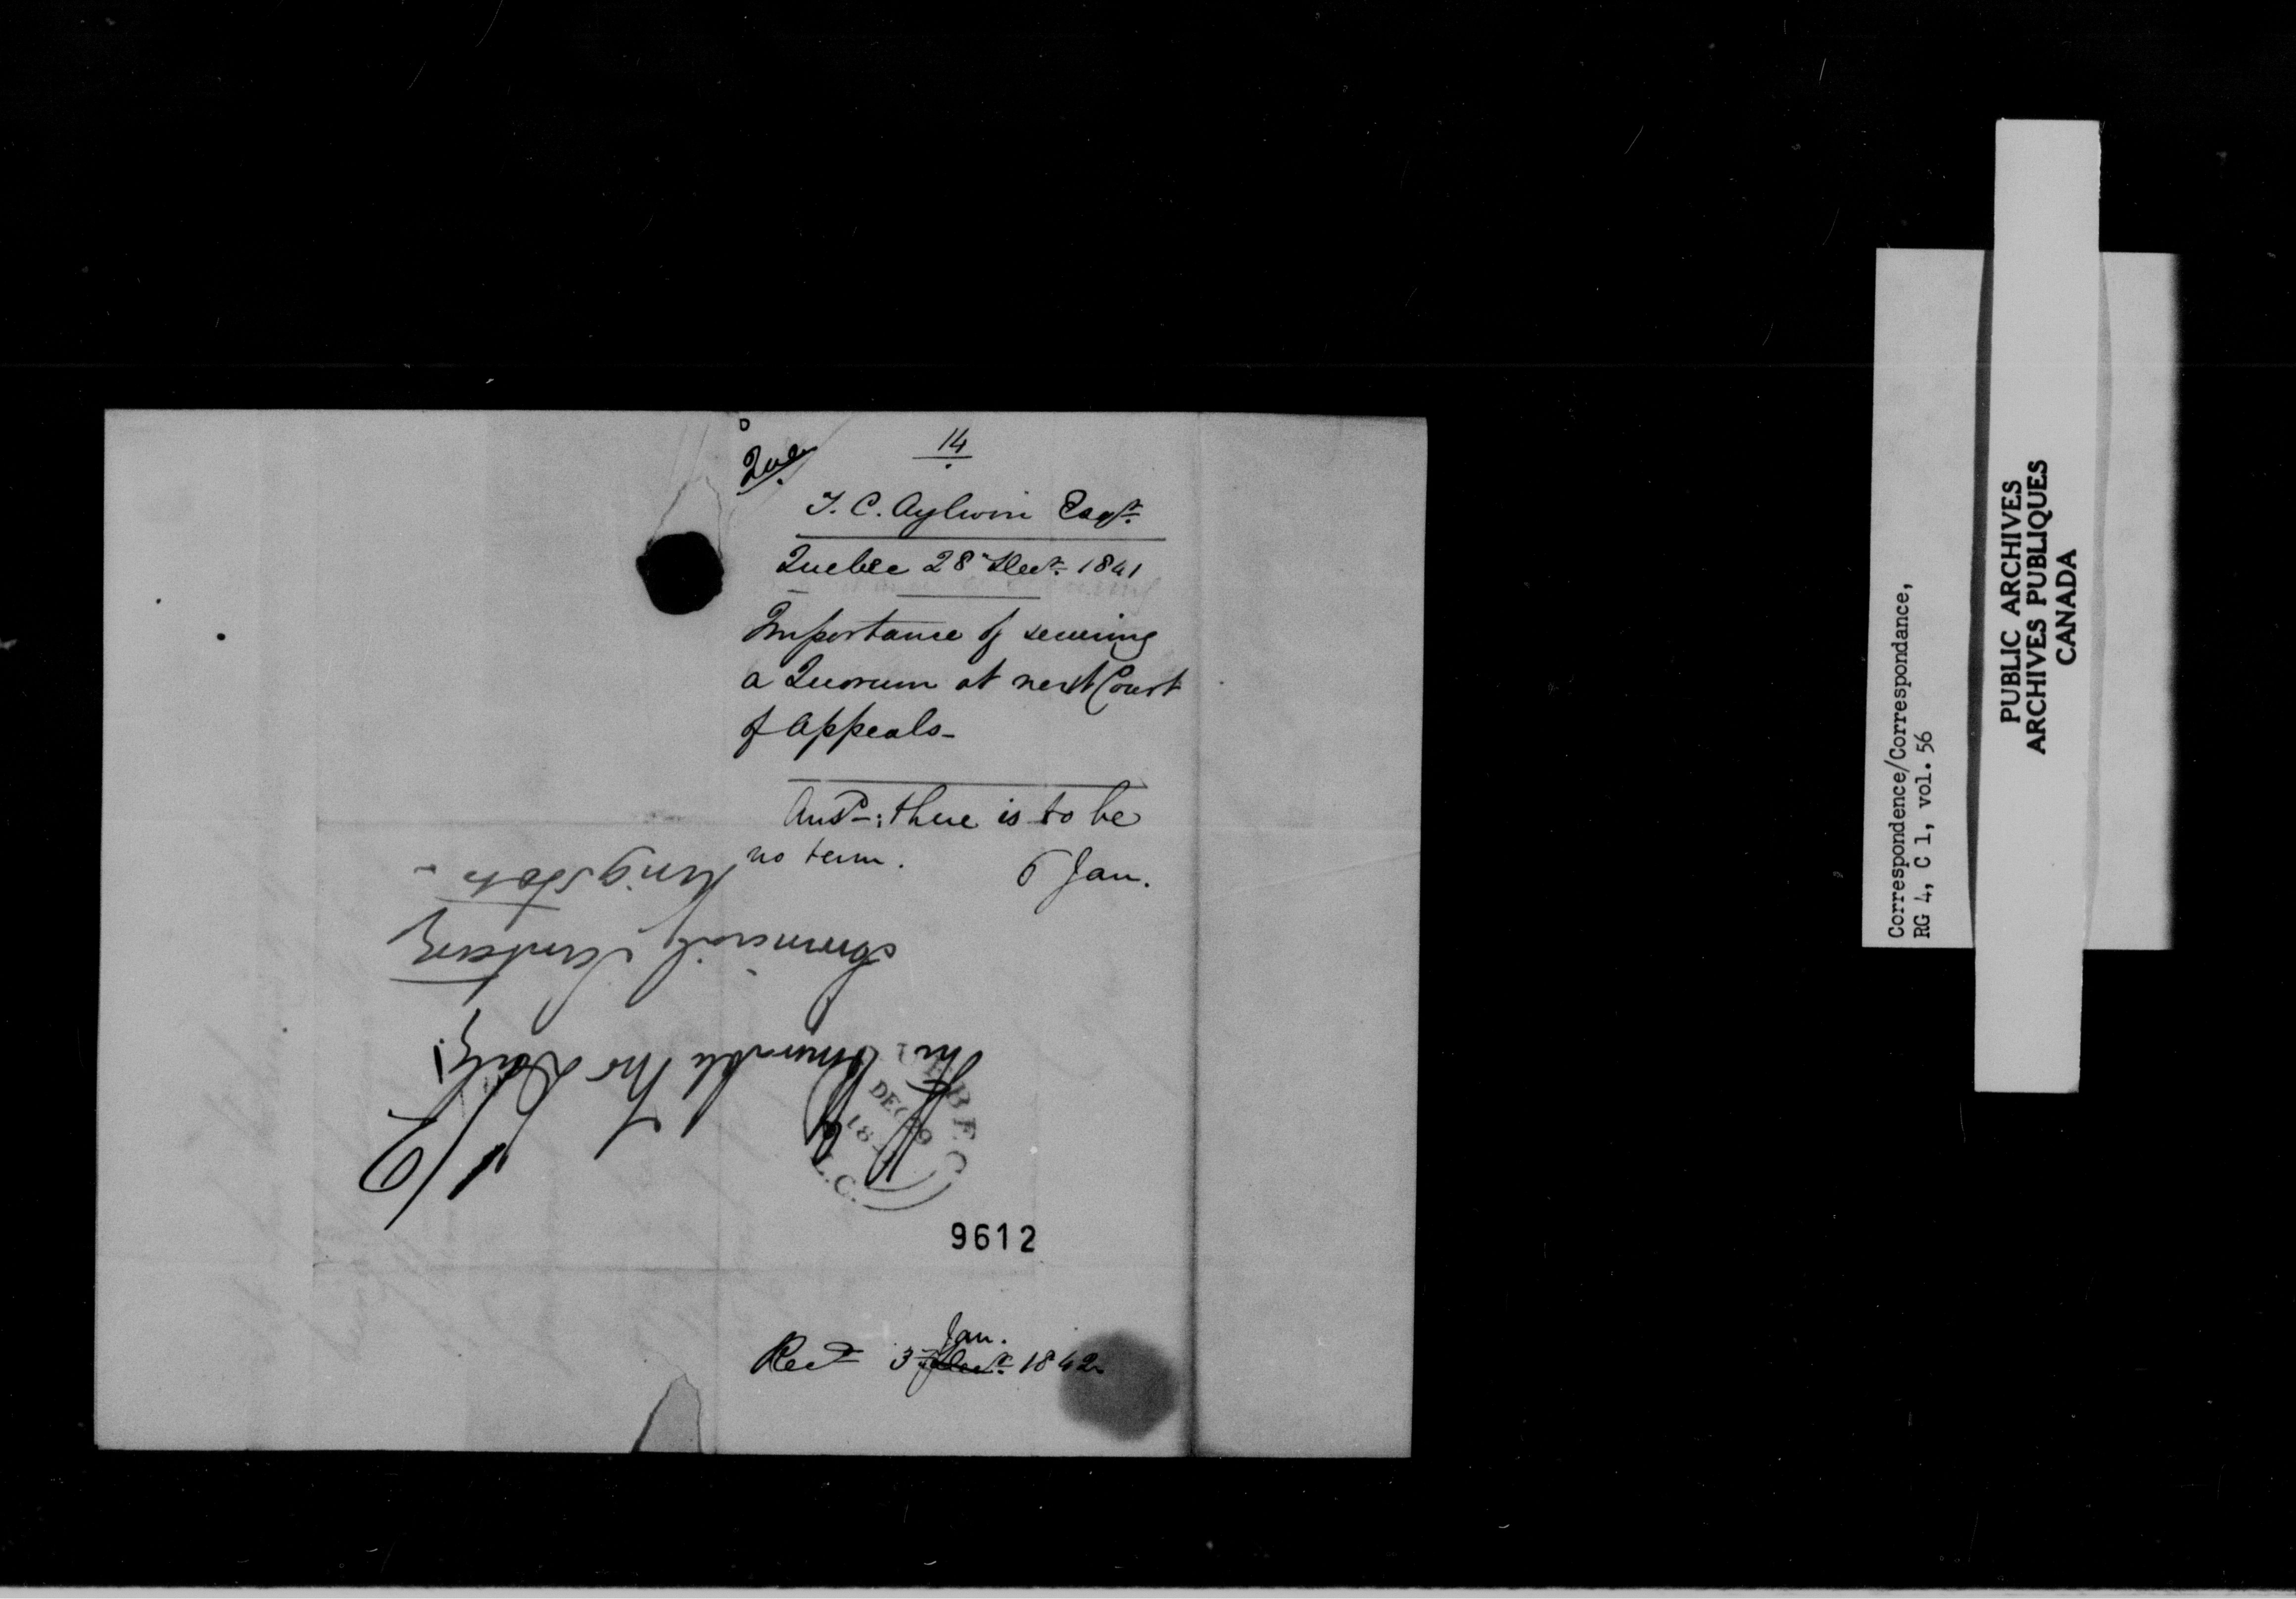 14
T. C. Aylwin Esqr.
Quebec 28 Decr. 1841
Importance of securing
a Quorum at next Court
of Appeals-
Ansd: there is to be
no term. 6 Jan.
The Honorable Mr Daly,
Provincial Secretary
Kingston-
QUEBEC
DEC 29
L.C.
9612
Jan.
Recd 3d Decr. 1842
Correspondence/Correspondance,
RG 4, C 1, vol. 56
PUBLIC ARCHIVES
ARCHIVES PUBLIQUES
CANADA